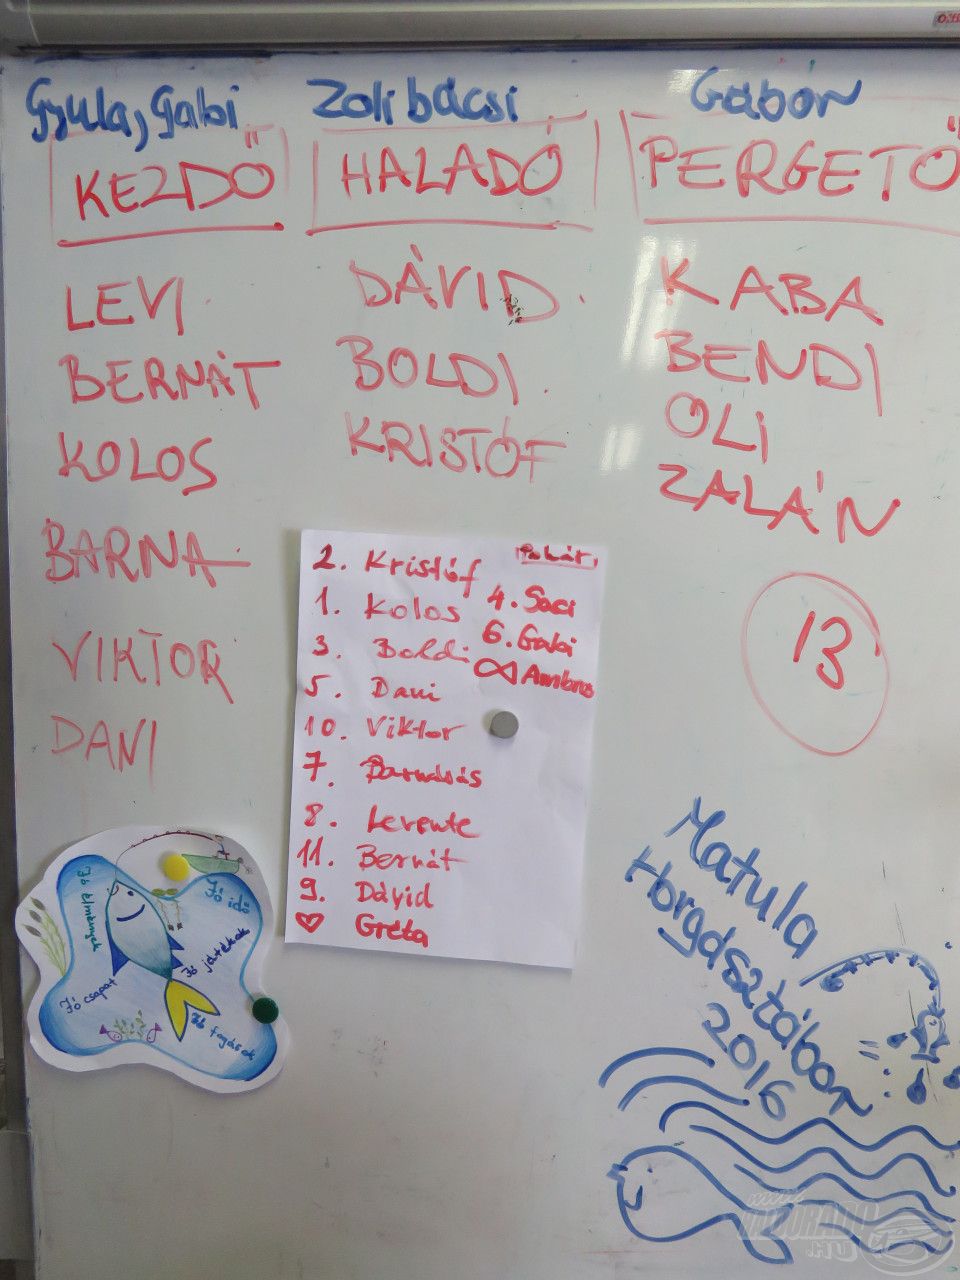 Gyula, Gabi
KEZDŐ
LEVI
BERNÁT
KOLOS
BARNA
VIKTOR
DANI
Zoli bácsi
HALADÓ
DÁVID
BOLDI
KRISTÓF
Gábor
PERGETŐ
KABA
BENDI
OLI
ZALÁN
13
Pohár.
2. Kristóf
1. Kolos
3. Boldi
5. Dani
10. Viktor
7. Barnabás
8. Levente
11. Bernát
9. Dávid
♡ Gréta
4. Saci
6. Gabi
∞ Ambrus
Jó élmények
Jó idő
Jó játékok
Jó csapat
Jó fogások
Matula
Horgásztábor
2016
www.
HALDORADO
.HU